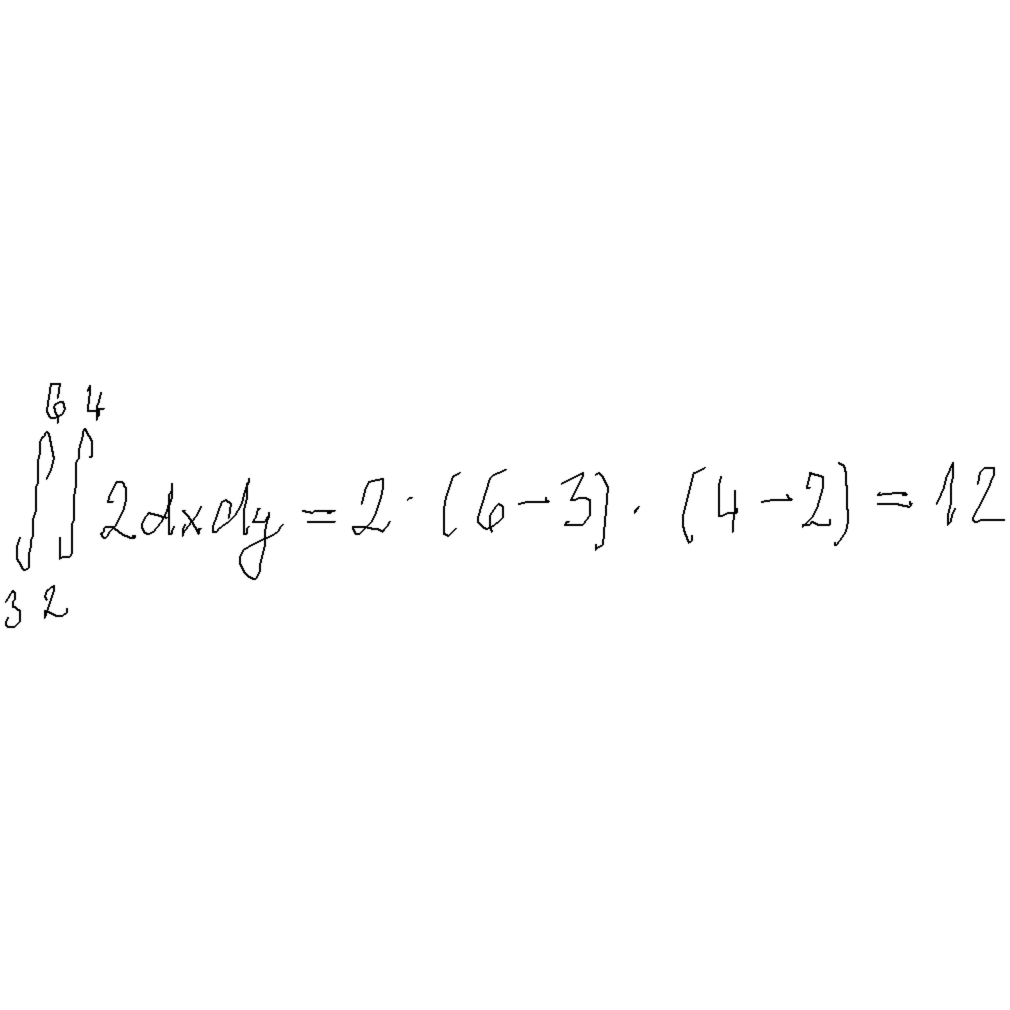 ∫₃⁶∫₂⁴ 2dxdy = 2 · (6 - 3) · (4 - 2) = 12